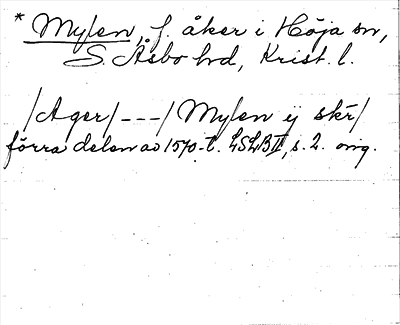 * Mylen, f. åker i Höja sn,
S. Åsbo hd, Krist. l.
/Ager/ --- / Mylen ij skr/
förra delen av 1570-t. LSLB II, s. 2. orig.